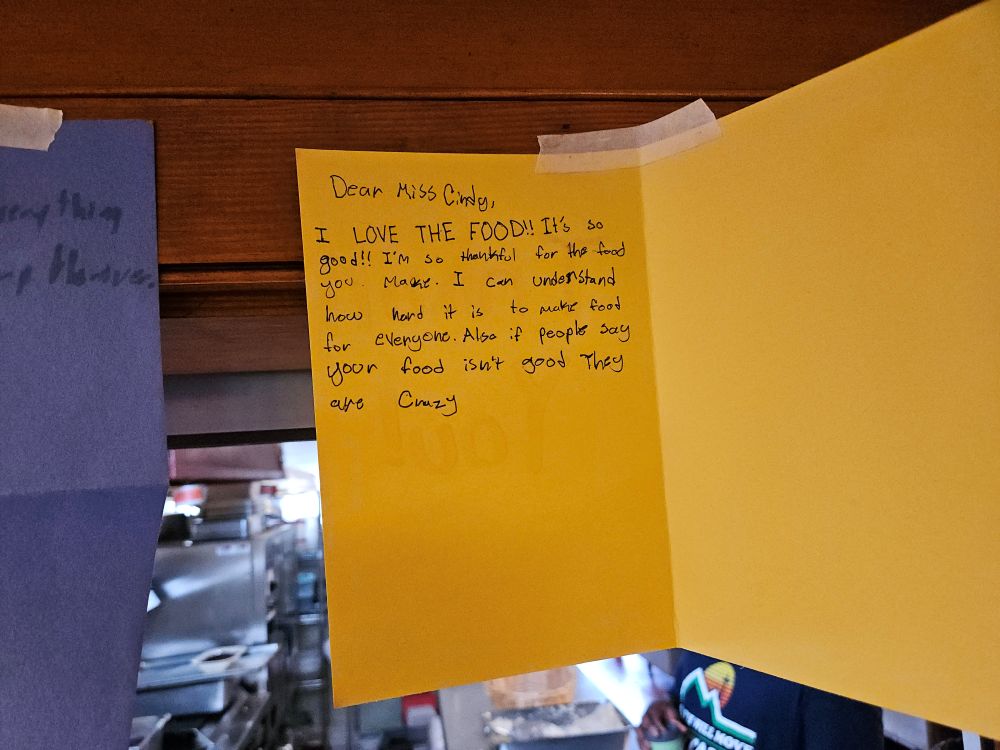 Dear Miss Cindy,
I LOVE THE FOOD!! It's so
good!! I'm so thankful for the food
you. Make. I can understand
how hard it is to make food
for everyone. Also if people say
your food isn't good They
are Crazy